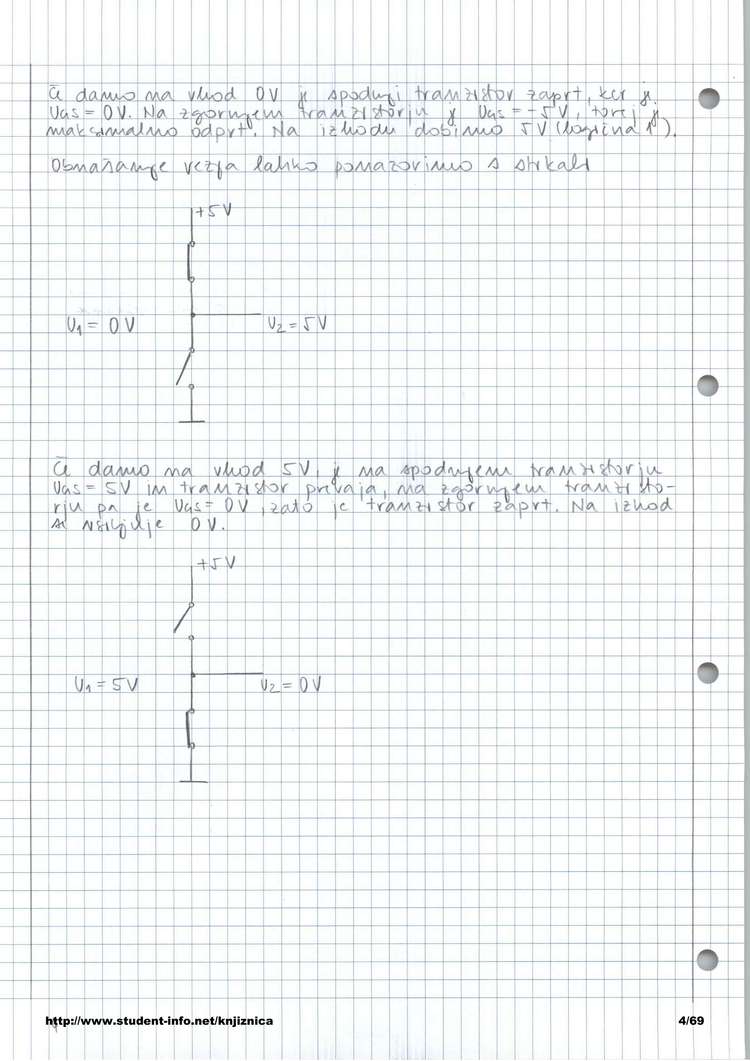 Če damo na vhod 0V je spodnji tranzistor zaprt, ker je
UGS = 0V. Na zgornjem tranzistorju je UGS = -5V, torej je
maksimalno odprt. Na izhodu dobimo 5V (logična 1).
Obnašanje vezja lahko ponazorimo s stikali
+5V
U1 = 0V
U2 = 5V
Če damo na vhod 5V, je na spodnjem tranzistorju
UGS = 5V in tranzistor prevaja, na zgornjem tranzisto-
rju pa je UGS = 0V, zato je tranzistor zaprt. Na izhod
se 0V.
+5V
U1 = 5V
U2 = 0V
http://www.student-info.net/knjiznica
4/69